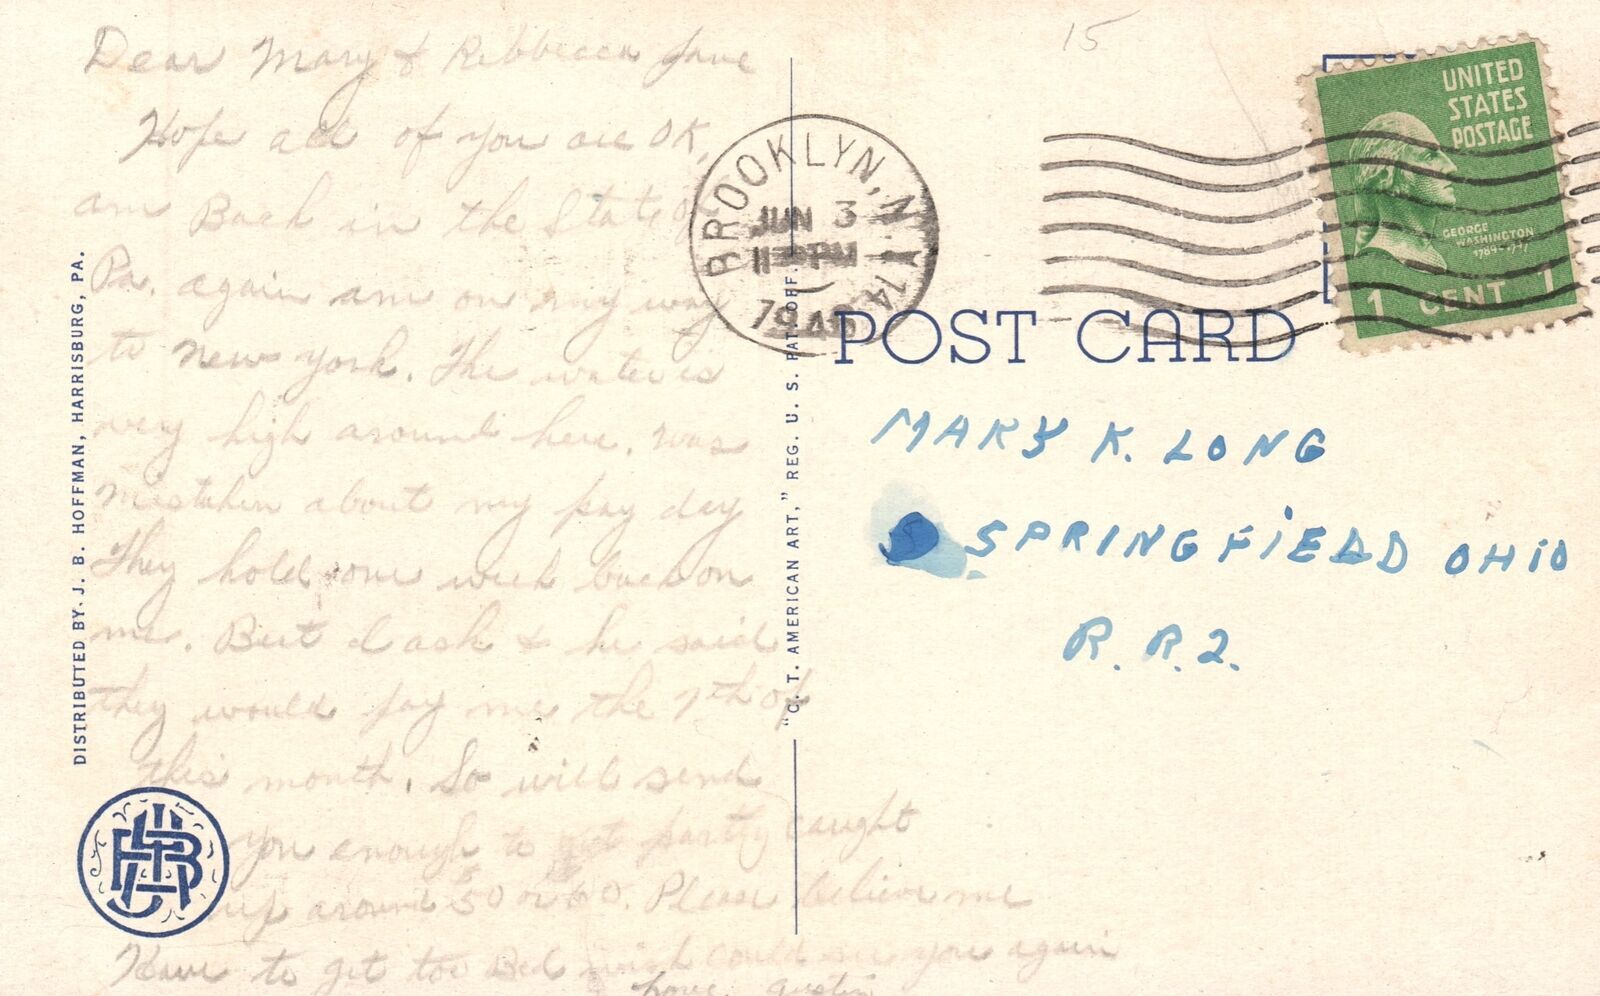 15
Dear Mary & Rebbecca Jane
Hope all of you are OK,
am Back in the State of
Pa. again am on my way
to New York. The water is
very high around here. was
mistaken about my pay day
They hold one week back on
me. But I ask & he said
they would pay me the 7th of
this month. So will send
you enough to get partly caught
up around 50 or 60. Please believe me
Have to get too Bed wish could see you again
Love Austin
DISTRIBUTED BY J. B. HOFFMAN, HARRISBURG, PA.
"C. T. AMERICAN ART," REG. U. S. PAT. OFF.
BROOKLYN, N.Y. 14
JUN 3
PM
19
UNITED
STATES
POSTAGE
GEORGE
WASHINGTON
1789-1797
1 CENT 1
POST CARD
MARY K. LONG
SPRINGFIELD OHIO
R. R. 2.